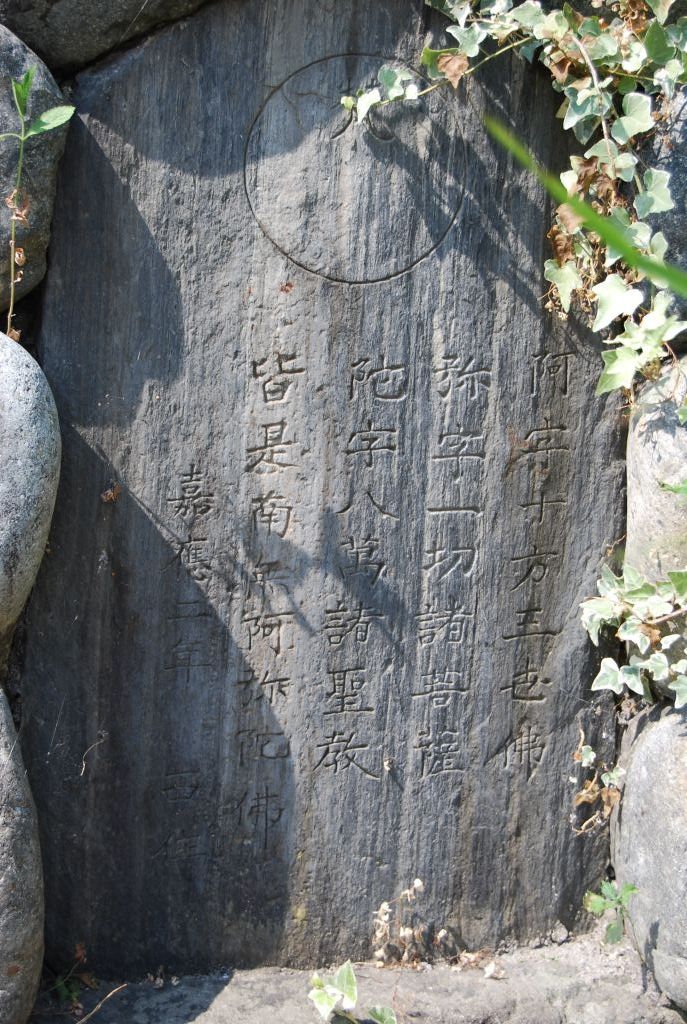 阿字十方三世佛
弥字一切諸菩薩
陀字八萬諸聖教
皆是南无阿弥陀佛
嘉應二年